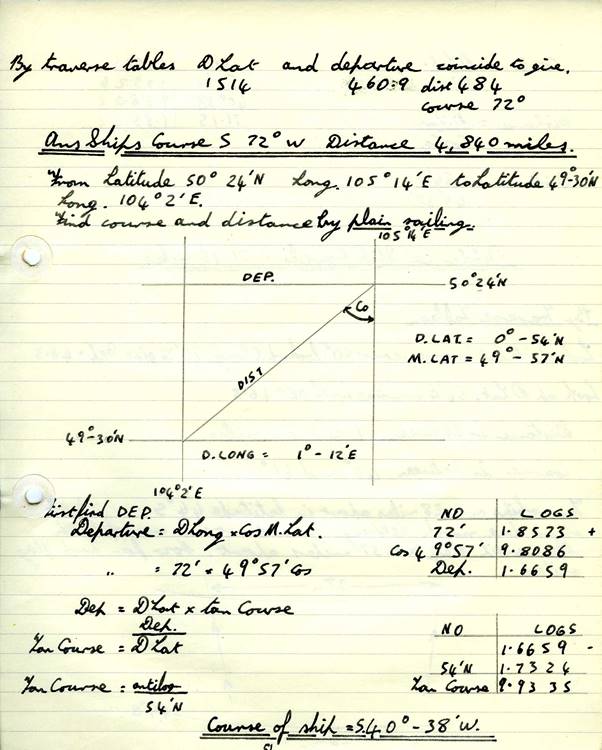 By traverse tables D Lat and departure coincide to give.
1514 460.9 dist 484
course 72°
Ans Ships Course S 72° W Distance 4,840 miles.
From Latitude 50° 24'N Long. 105° 14'E to Latitude 49°-30'N
Long. 104° 2' E.
Find course and distance by plain sailing.
105° 14'E
DEP. 50° 24'N
Co
D. LAT. = 0° - 54'N
M. LAT = 49° - 57'N
DIST
49°-30'N
D. LONG = 1° - 12'E
104° 2'E
First find DEP. NO LOGS
Departure = D Long × Cos M. Lat. 72' 1.8573 +
Cos 49°57' 9.8086
" = 72' × 49°57' Cos Dep. 1.6659
Dep = D Lat × tan Course
Dep. NO LOGS
Tan Course = D Lat 1.6659 -
54'N 1.7324
Tan Course = antilog Tan Course 9.9335
54'N
Course of ship = S.40° - 38' W.